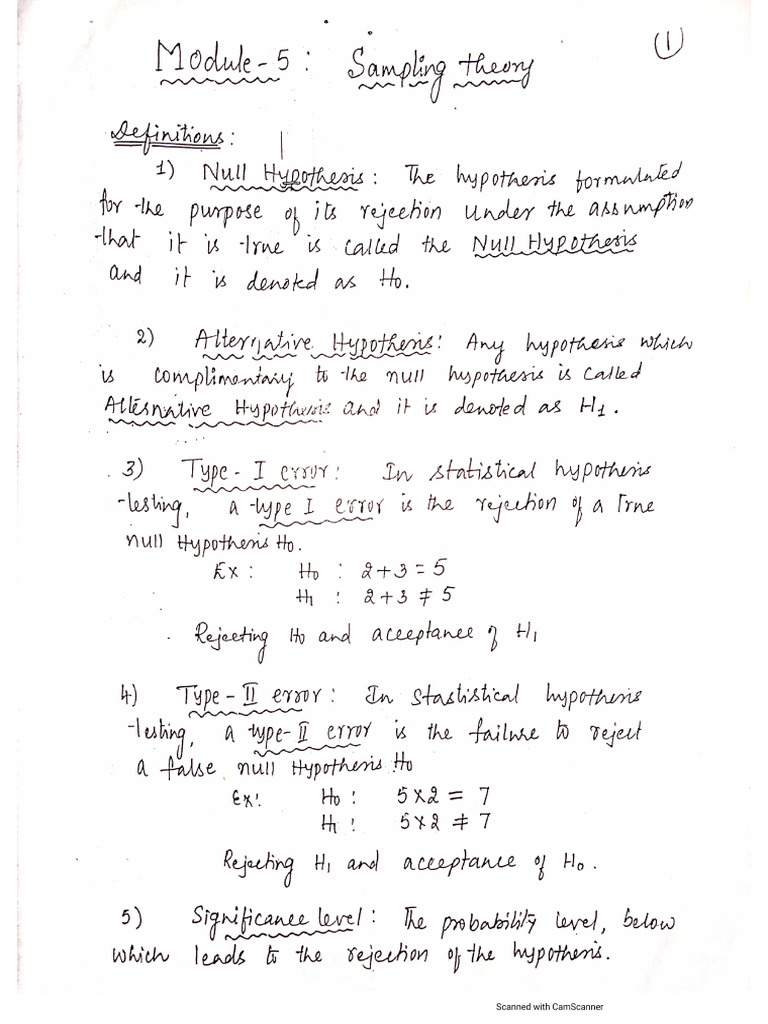 ①
Module-5: Sampling theory
Definitions:
1) Null Hypothesis: The hypothesis formulated
for the purpose of its rejection under the assumption
that it is true is called the Null Hypothesis
and it is denoted as H0.
2) Alternative Hypothesis: Any hypothesis which
is complimentary to the null hypothesis is called
Alternative Hypothesis and it is denoted as H1.
3) Type-I error: In statistical hypothesis
testing, a type I error is the rejection of a True
null Hypothesis H0.
Ex: H0: 2+3=5
H1: 2+3≠5
Rejecting H0 and acceptance of H1
4) Type-II error: In stastistical hypothesis
testing, a type-II error is the failure to reject
a false null Hypothesis H0
Ex: H0: 5×2 = 7
H1: 5×2 ≠ 7
Rejecting H1 and acceptance of H0.
5) Significance level: The probability level, below
which leads to the rejection of the hypothesis.
Scanned with CamScanner